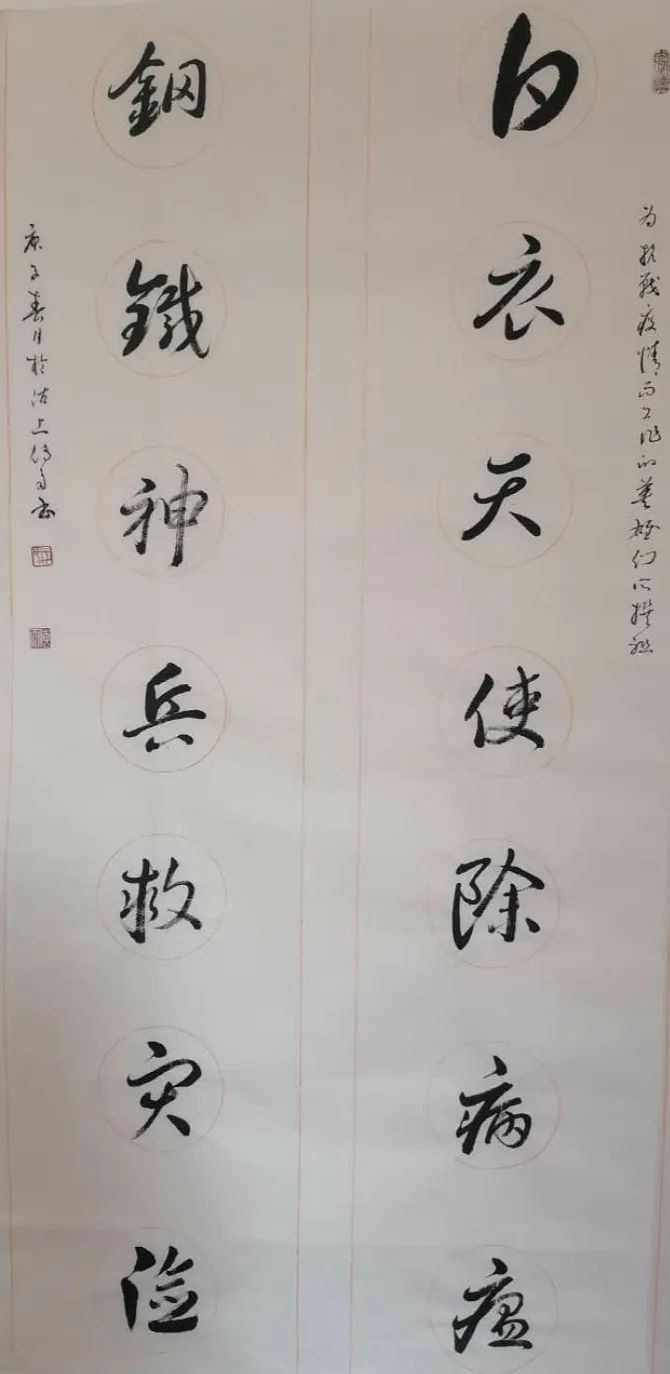 为抗战疫情而工作的英雄们所撰联
白衣天使除病瘟
鋼鐵神兵救灾险
庚子春月於沽上书